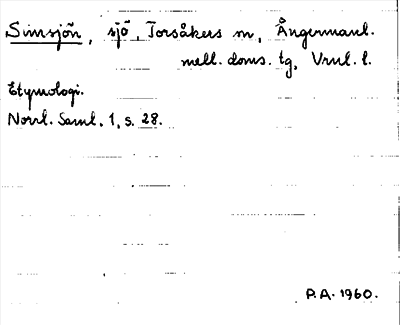 Simsjön, sjö, Torsåkers sn, Ångermanl.
mell. doms. tg, Vrnl. l.
Etymologi.
Norrl. Saml. 1, s. 28.
P.A. 1960.